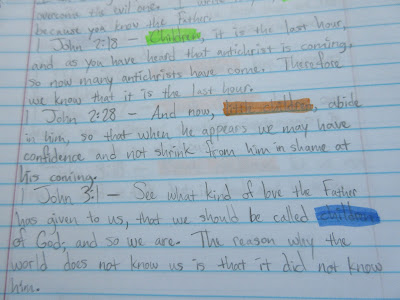 overcome the evil one. I write
because you know the Father.
1 John 2:18 – Children, it is the last hour,
and as you have heard that antichrist is coming,
so now many antichrists have come. Therefore
we know that it is the last hour.
1 John 2:28 – And now, little children, abide
in him, so that when he appears we may have
confidence and not shrink from him in shame at
his coming.
1 John 3:1 – See what kind of love the Father
has given to us, that we should be called children
of God; and so we are. The reason why the
world does not know us is that it did not know
him.